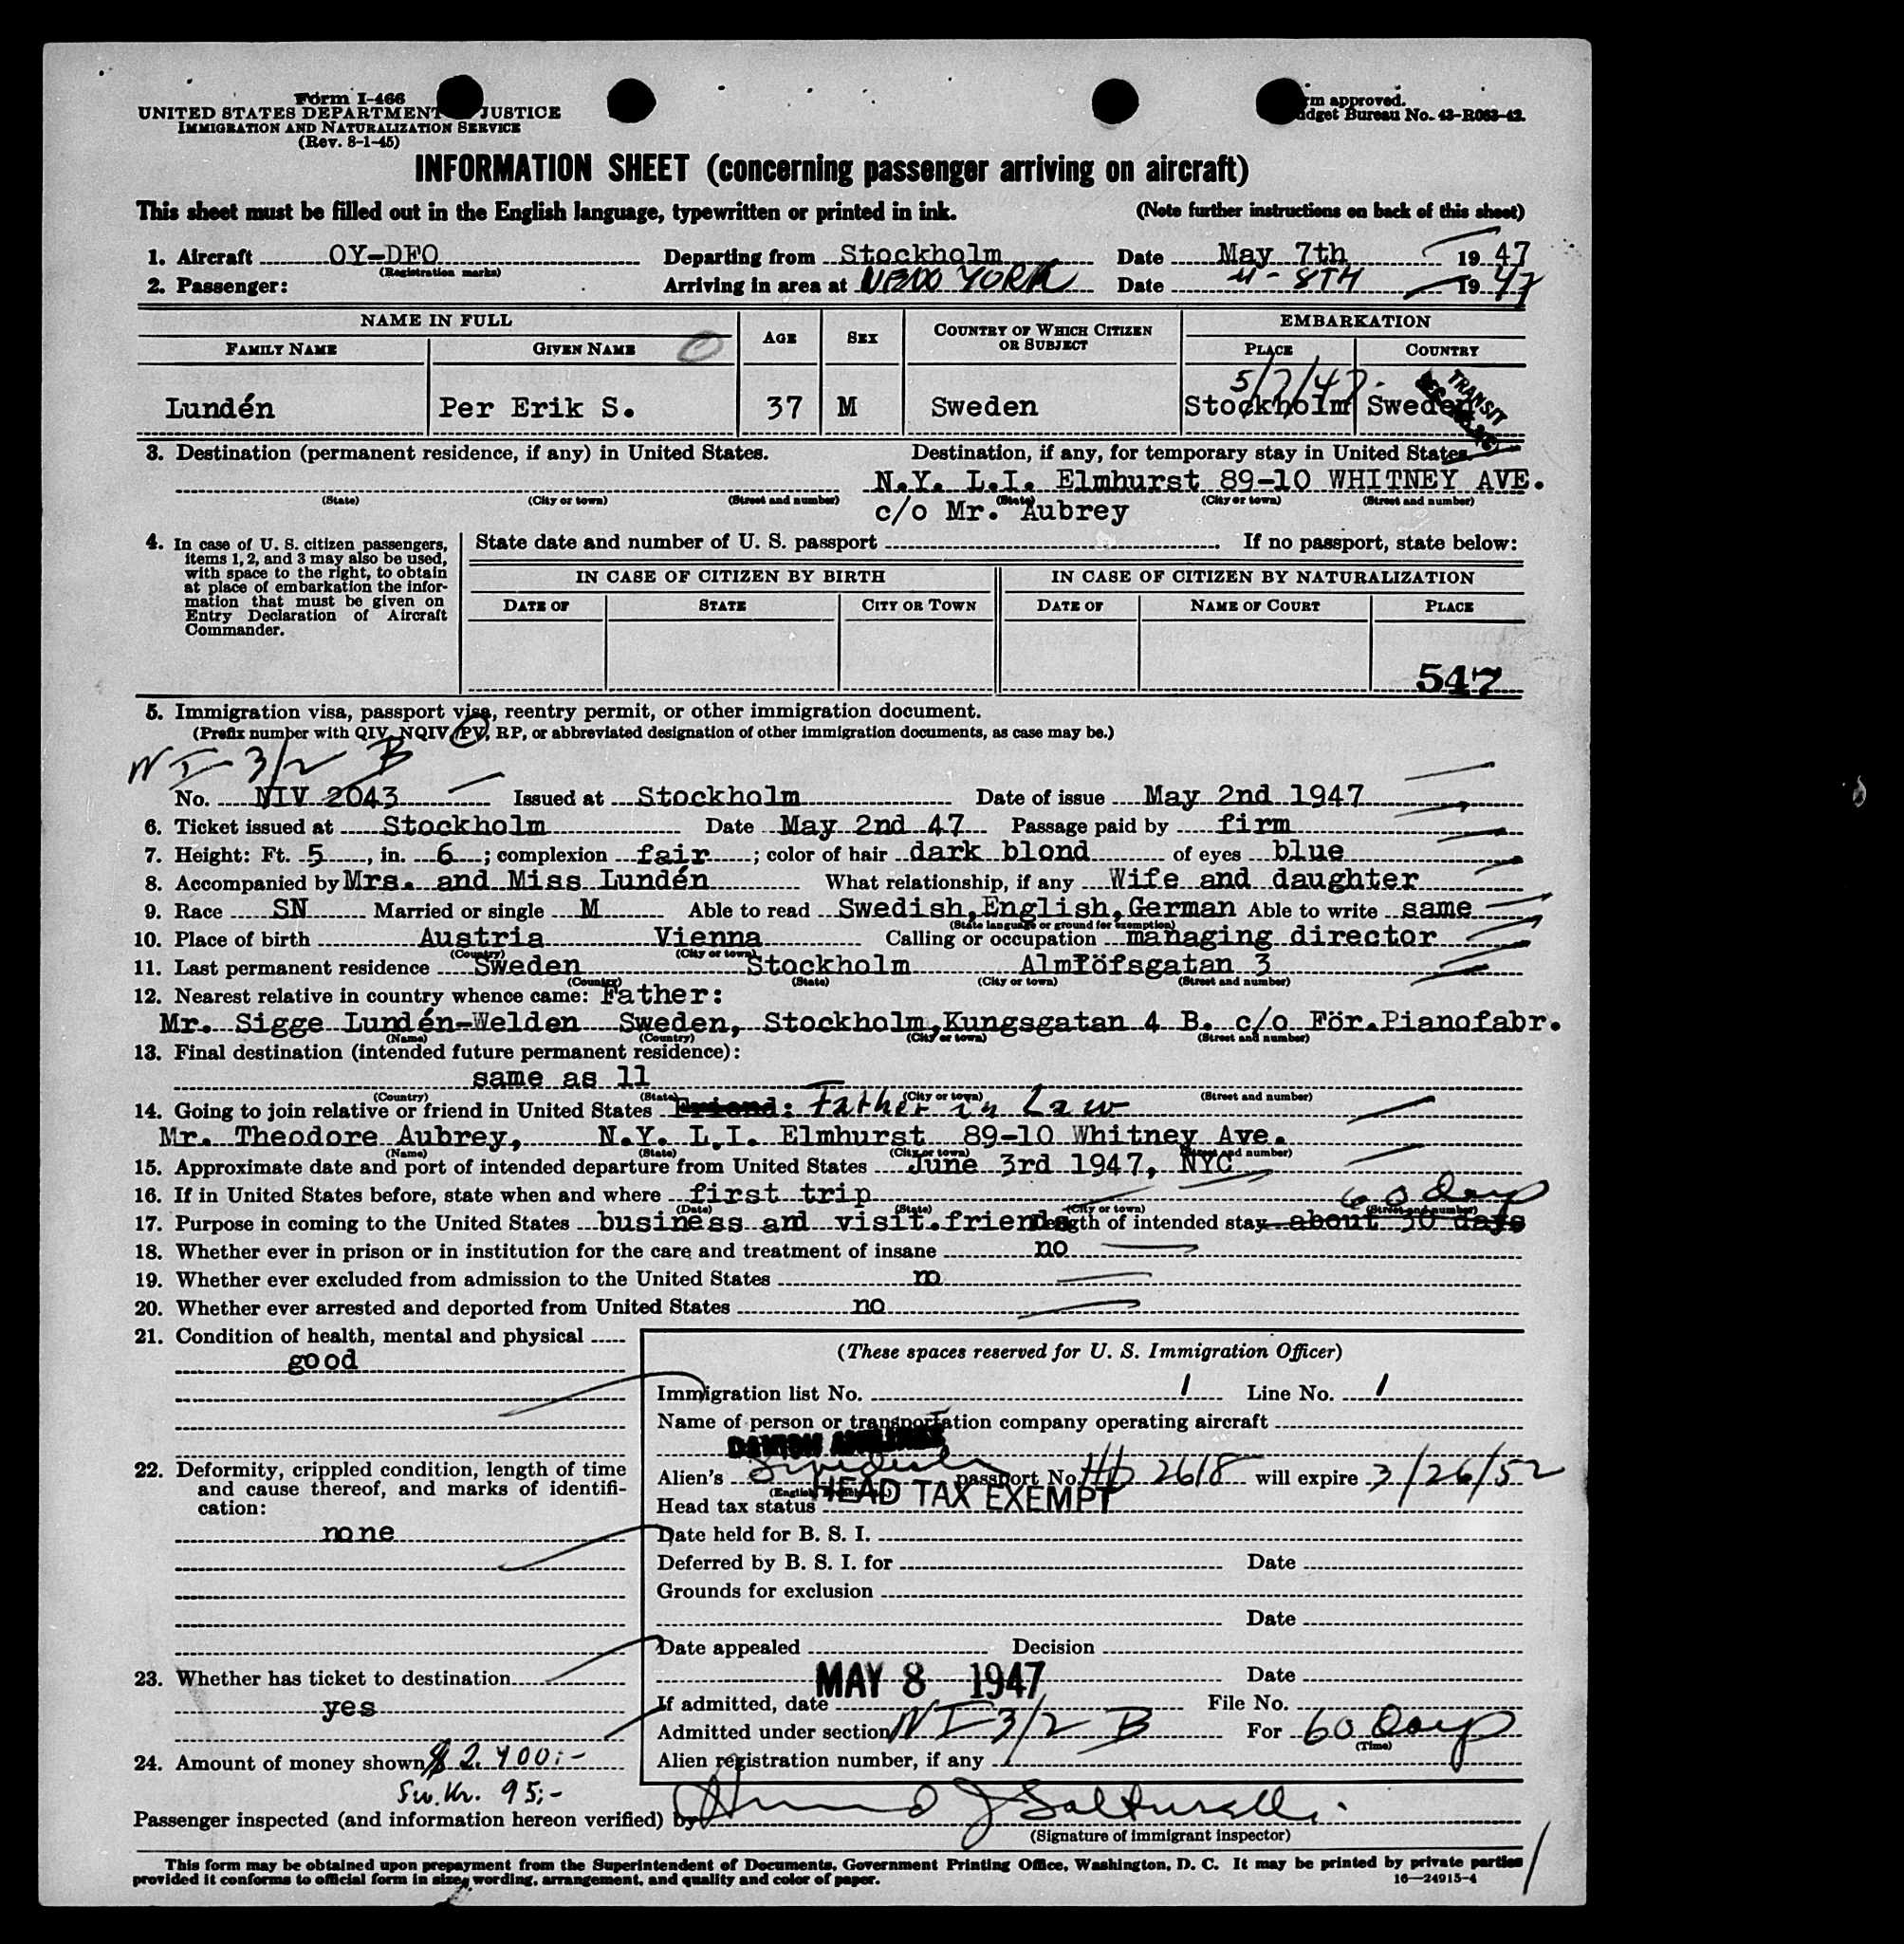 Form I-466
UNITED STATES DEPARTMENT JUSTICE
IMMIGRATION AND NATURALIZATION SERVICE
(Rev. 8-1-45)
rm approved.
dget Bureau No. 43-R063-42.
INFORMATION SHEET (concerning passenger arriving on aircraft)
This sheet must be filled out in the English language, typewritten or printed in ink. (Note further instructions on back of this sheet)
1. Aircraft OY-DFO Departing from Stockholm Date May 7th 1947
(Registration marks)
2. Passenger: Arriving in area at NEW YORK Date 8TH 1947
NAME IN FULL AGE SEX COUNTRY OF WHICH CITIZEN OR SUBJECT EMBARKATION
FAMILY NAME GIVEN NAME PLACE COUNTRY
5/7/47. TRANSIT
Lundén Per Erik S. 37 M Sweden Stockholm Sweden
3. Destination (permanent residence, if any) in United States. Destination, if any, for temporary stay in United States.
N.Y. L.I. Elmhurst 89-10 WHITNEY AVE.
(State) (City or town) (Street and number) (State) (City or town) (Street and number)
c/o Mr. Aubrey
4. In case of U. S. citizen passengers, items 1, 2, and 3 may also be used, with space to the right, to obtain at place of embarkation the information that must be given on Entry Declaration of Aircraft Commander.
State date and number of U. S. passport If no passport, state below:
IN CASE OF CITIZEN BY BIRTH IN CASE OF CITIZEN BY NATURALIZATION
DATE OF STATE CITY OR TOWN DATE OF NAME OF COURT PLACE
547
5. Immigration visa, passport visa, reentry permit, or other immigration document.
(Prefix number with QIV, NQIV, PV, RP, or abbreviated designation of other immigration documents, as case may be.)
NI-3/2 B
No. NIV 2043 Issued at Stockholm Date of issue May 2nd 1947
6. Ticket issued at Stockholm Date May 2nd 47 Passage paid by firm
7. Height: Ft. 5, in. 6; complexion fair; color of hair dark blond of eyes blue
8. Accompanied by Mrs. and Miss Lundén What relationship, if any Wife and daughter
9. Race SN Married or single M Able to read Swedish, English, German Able to write same
(State language or ground for exemption)
10. Place of birth Austria Vienna Calling or occupation managing director
(Country) (City or town)
11. Last permanent residence Sweden Stockholm Almlöfsgatan 3
(Country) (State) (City or town) (Street and number)
12. Nearest relative in country whence came: Father:
Mr. Sigge Lundén-Welden Sweden, Stockholm, Kungsgatan 4 B. c/o För.Pianofabr.
(Name) (Country) (City or town) (Street and number)
13. Final destination (intended future permanent residence):
same as 11
(Country) (State) (City or town) (Street and number)
14. Going to join relative or friend in United States Friend: Father in Law
Mr. Theodore Aubrey, N.Y. L.I. Elmhurst 89-10 Whitney Ave.
(Name) (State) (City or town) (Street and number)
15. Approximate date and port of intended departure from United States June 3rd 1947, NYC
16. If in United States before, state when and where first trip 60 days
(Date) (State) (City or town) (Street and number)
17. Purpose in coming to the United States business and visit.friends Length of intended stay about 30 days
18. Whether ever in prison or in institution for the care and treatment of insane no
19. Whether ever excluded from admission to the United States no
20. Whether ever arrested and deported from United States no
21. Condition of health, mental and physical
good
22. Deformity, crippled condition, length of time and cause thereof, and marks of identification:
none
23. Whether has ticket to destination
yes
24. Amount of money shown $ 2.400:-
Sw.Kr. 95:-
(These spaces reserved for U. S. Immigration Officer)
Immigration list No. 1 Line No. 1
Name of person or transportation company operating aircraft
DANISH AIRLINES
Alien's Swedish passport No. 2618 will expire 3/26/52
Head tax status HEAD TAX EXEMPT
Date held for B. S. I.
Deferred by B. S. I. for Date
Grounds for exclusion
Date
Date appealed Decision
Date
MAY 8 1947
If admitted, date File No.
Admitted under section NI-3/2 B For 60 Days
(Time)
Alien registration number, if any
Passenger inspected (and information hereon verified) by
(Signature of immigrant inspector)
This form may be obtained upon prepayment from the Superintendent of Documents, Government Printing Office, Washington, D. C. It may be printed by private parties
provided it conforms to official form in size, wording, arrangement, and quality and color of paper.
16—24915-4